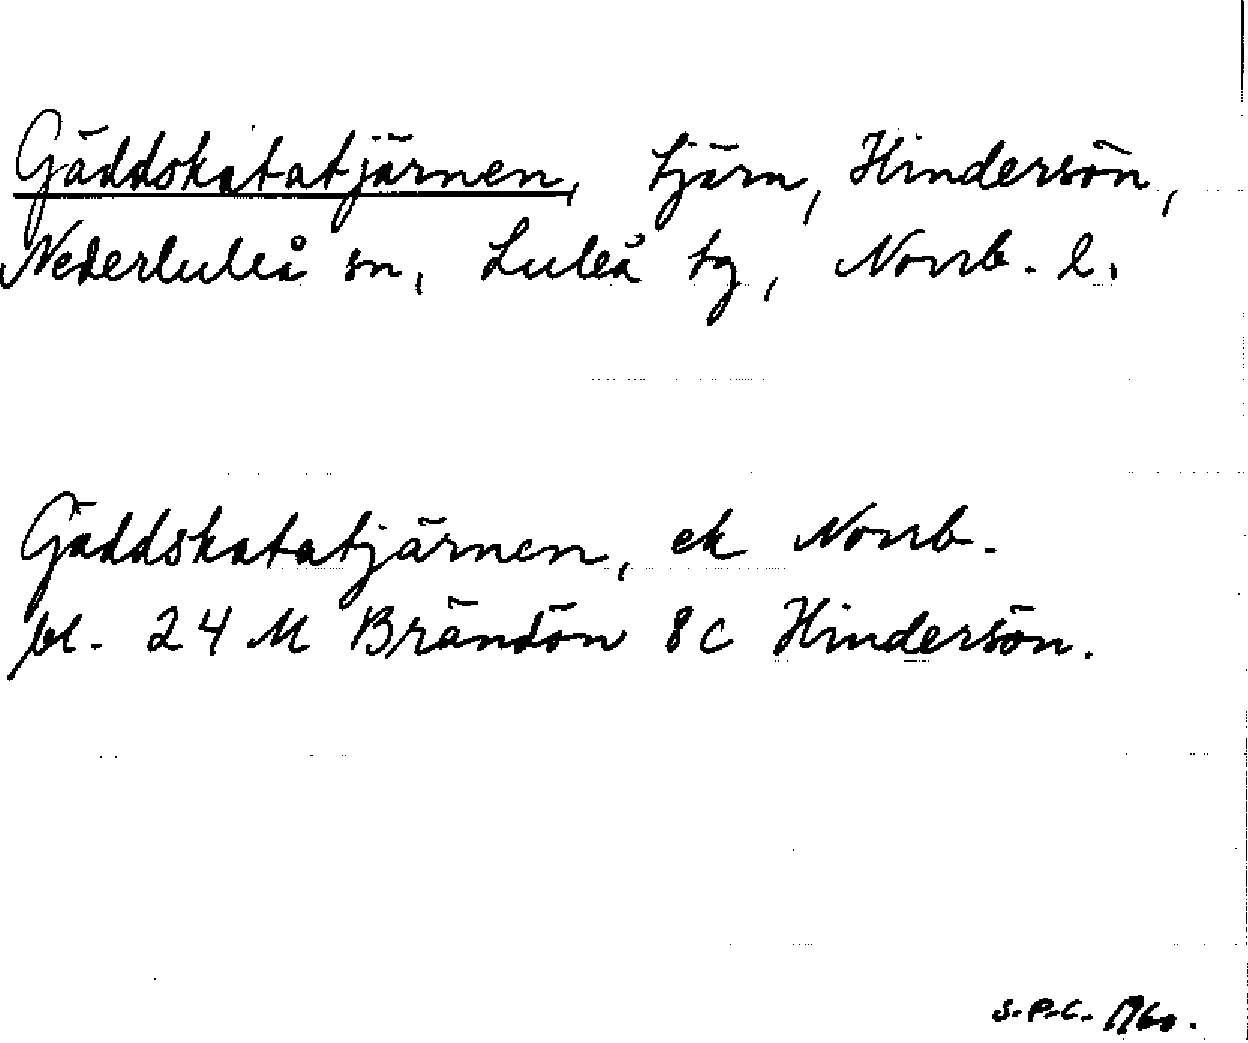 Gäddskatatjärnen, tjärn, Hindersön,
Nederluleå sn, Luleå tg, Norrb. l.
Gäddskatatjärnen, ek Norrb.
bl. 24 M Brändön 8c Hindersön.
S.P.C. 1960.